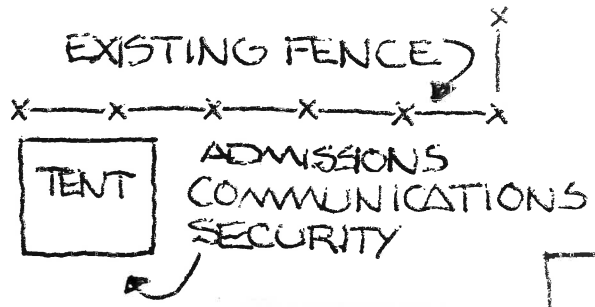 EXISTING FENCE
TENT
ADMISSIONS
COMMUNICATIONS
SECURITY